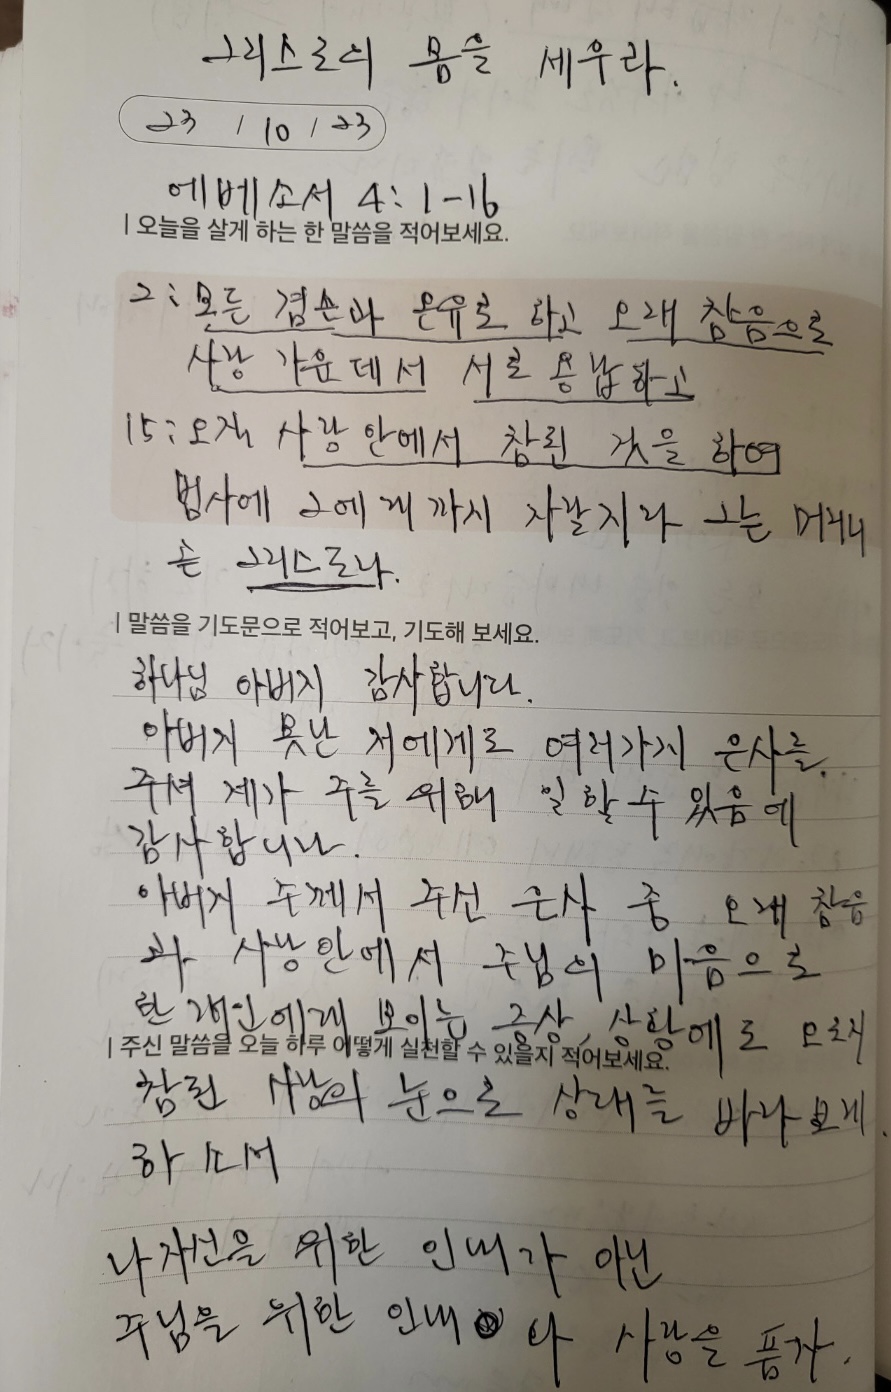 그리스도의 몸을 세우라.
23 / 10 / 23
에베소서 4:1-16
| 오늘을 살게 하는 한 말씀을 적어보세요.
2: 모든 겸손과 온유로 하고 오래 참음으로
사랑 가운데서 서로 용납하고
15: 오직 사랑 안에서 참된 것을 하여
범사에 그에게까지 자랄지라 그는 머리니
곧 그리스도라.
| 말씀을 기도문으로 적어보고, 기도해 보세요.
하나님 아버지 감사합니다.
아버지 못난 저에게도 여러가지 은사를
주셔 제가 주를 위해 일 할 수 있음에
감사합니다.
아버지 주께서 주신 은사 중 오래 참음
과 사랑안에서 주님의 마음으로
한 개인에게 보이는 증상, 상황에도 오직
| 주신 말씀을 오늘 하루 어떻게 실천할 수 있을지 적어보세요.
참된 사랑의 눈으로 상대를 바라보게
하소서
나 자신을 위한 인내가 아닌
주님을 위한 인내와 사랑을 품자.